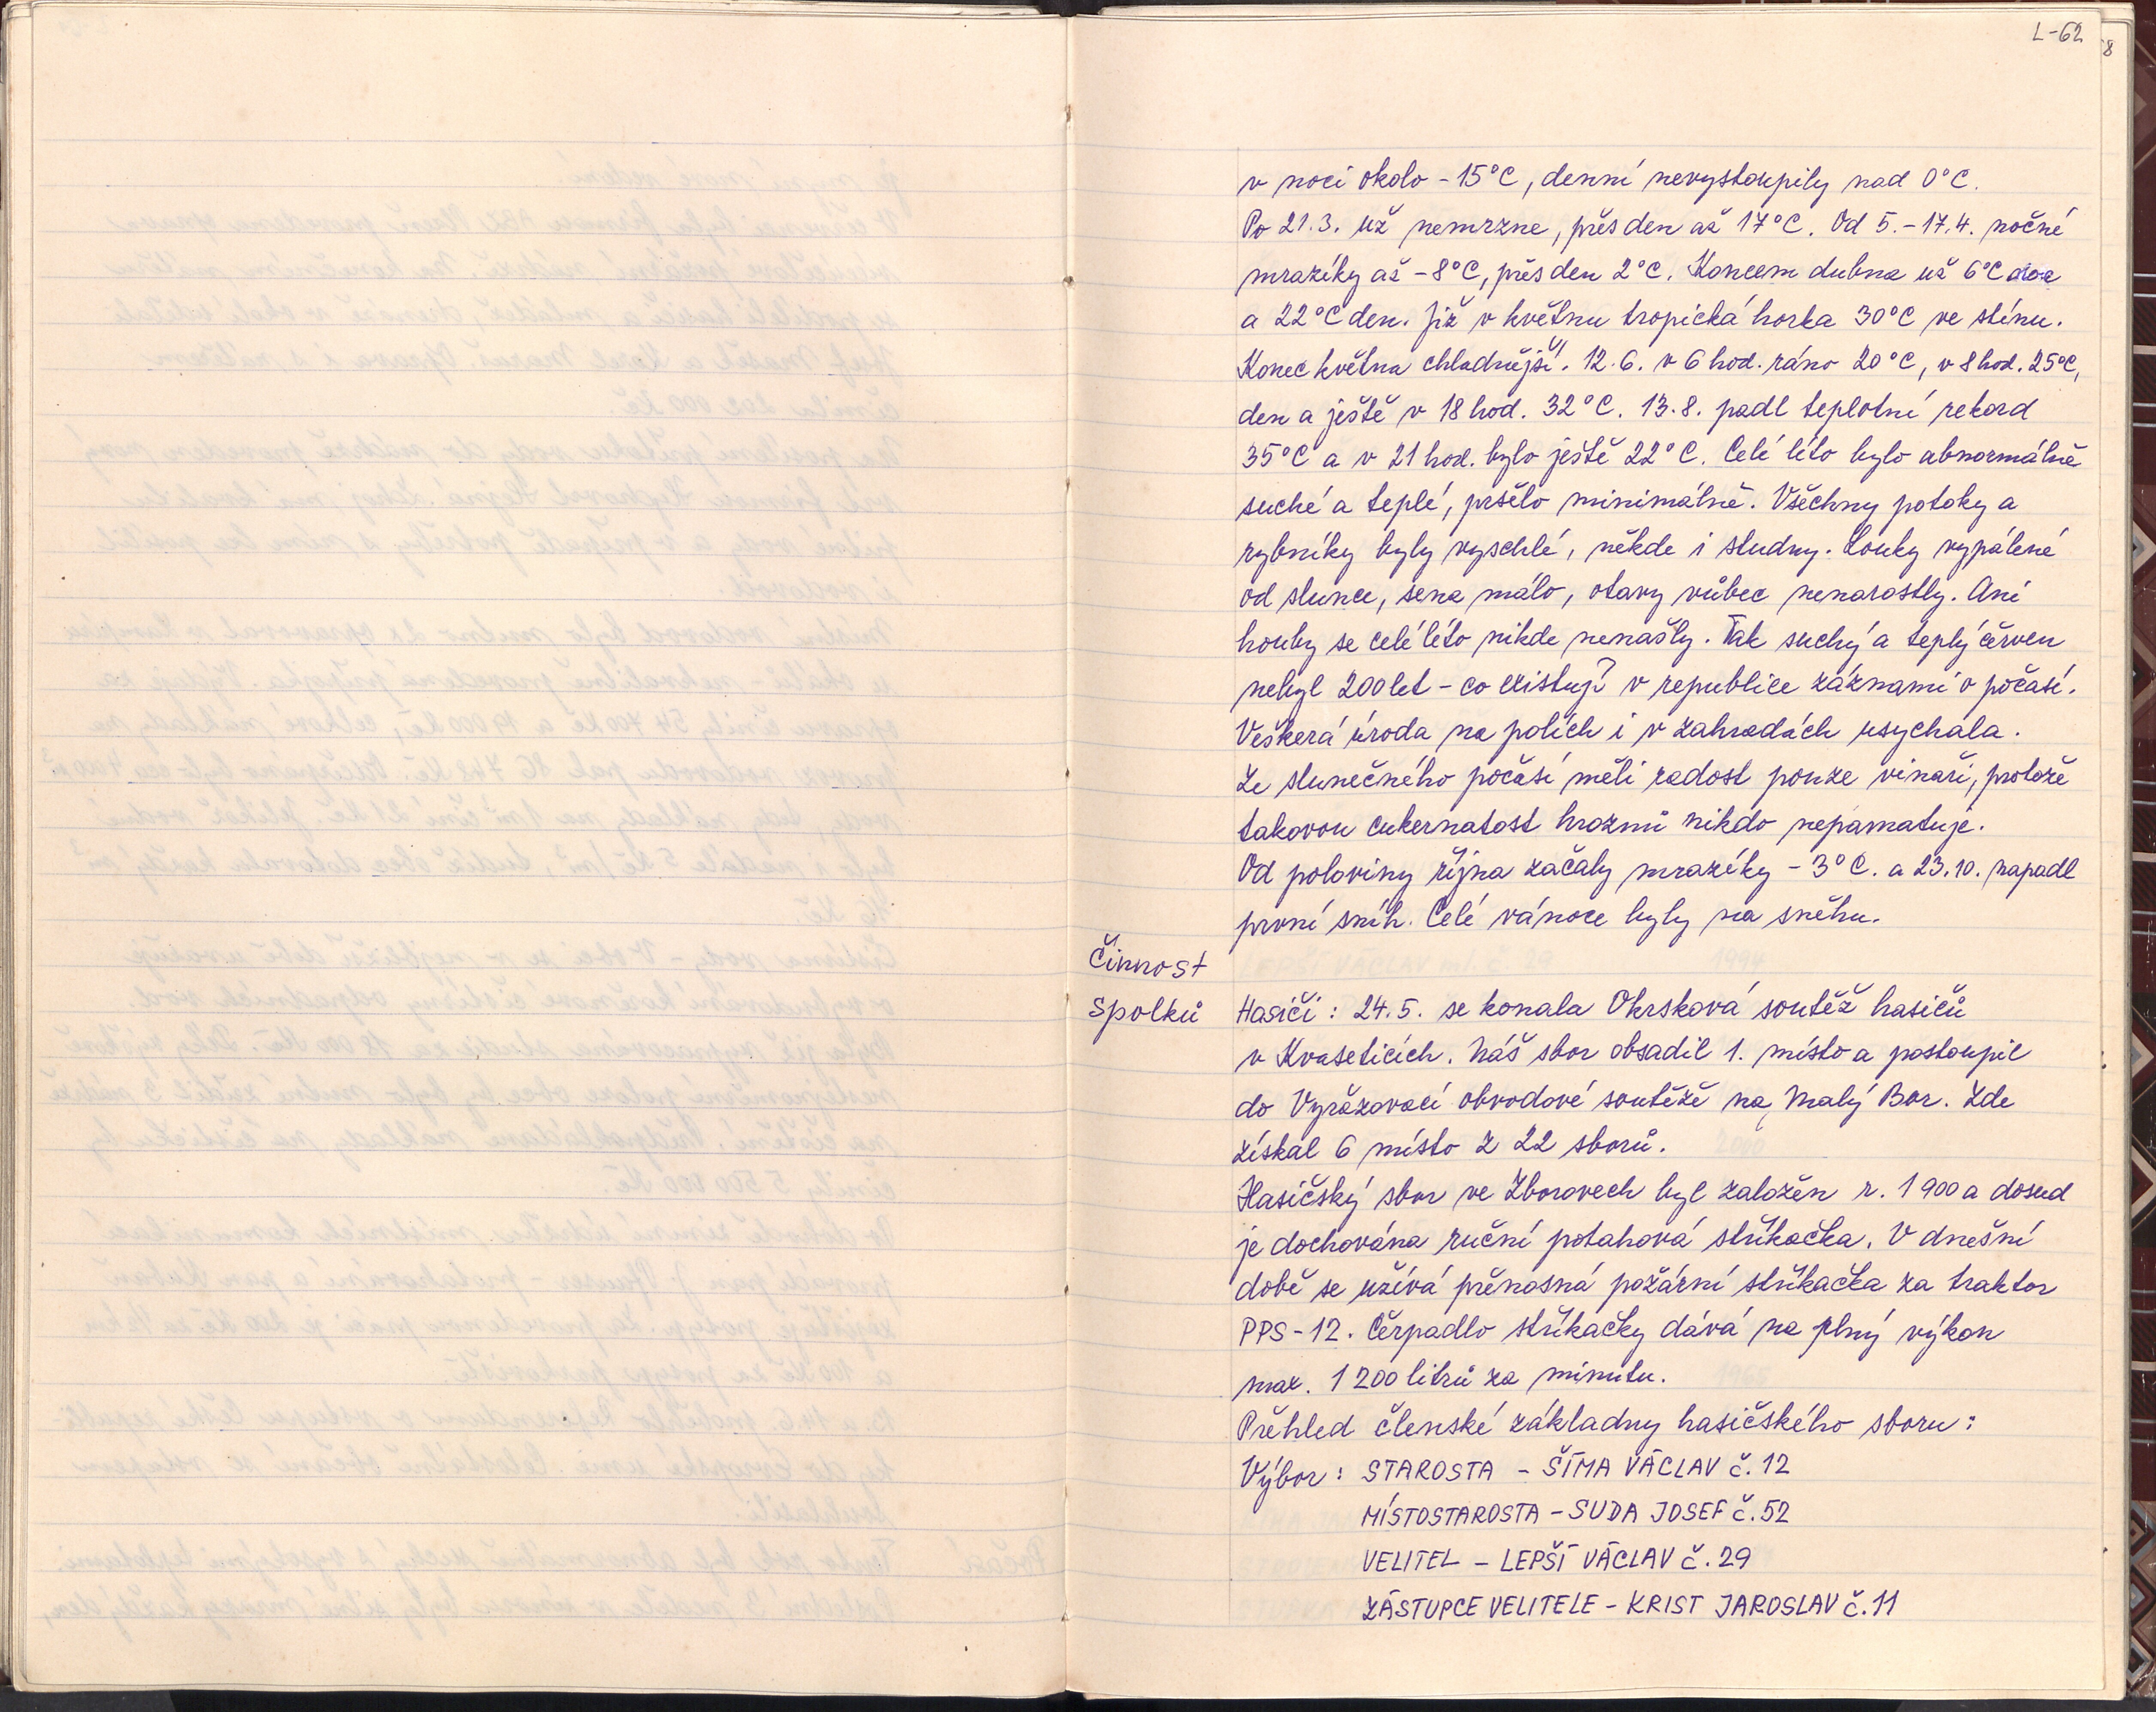 L-62
8
v noci okolo -15°C, denní nevystoupily nad 0°C.
Po 21.3. už nemrzne, přes den až 17°C. Od 5.-17.4. nočné
mrazíky až -8°C, přes den 2°C. Koncem dubna už 6°C noc
a 22°C den. Již v květnu tropická horka 30°C ve stínu.
Konec května chladnější. 12.6. v 6 hod. ráno 20°C, v 8 hod. 25°C,
den a ještě v 18 hod. 32°C. 13.8. padl teplotní rekord
35°C a v 21 hod. bylo ještě 22°C. Celé léto bylo abnormálně
suché a teplé, pršelo minimálně. Všechny potoky a
rybníky byly vyschlé, někde i studny. Louky vypálené
od slunce, sena málo, otavy vůbec nenarostly. Ani
houby se celé léto nikde nenašly. Tak suchý a teplý červen
nebyl 200 let - co existují v republice záznamí o počasí.
Veškerá úroda na polích i v zahradách usychala.
Ze slunečného počasí měli radost pouze vinaři, protože
takovou cukernatost hroznů nikdo nepamatuje.
Od poloviny října začaly mrazíky -3°C. a 23.10. napadl
první sníh. Celé vánoce byly na sněhu.
Činnost
spolků
Hasiči: 24.5. se konala Okrsková soutěž hasičů
v Kvaseticích. Náš sbor obsadil 1. místo a postoupil
do Vyřazovací obvodové soutěže na Malý Bor. Zde
získal 6 místo z 22 sborů.
Hasičský sbor ve Zborovech byl založen r. 1900 a dosud
je dochována ruční potahová stříkačka. V dnešní
době se užívá přenosná požární stříkačka za traktor
PPS-12. Čerpadlo stříkačky dává na plný výkon
max. 1200 litrů za minutu.
Přehled členské základny hasičského sboru:
Výbor: STAROSTA - ŠÍMA VÁCLAV č.12
MÍSTOSTAROSTA - SUDA JOSEF č.52
VELITEL - LEPŠÍ VÁCLAV č.29
ZÁSTUPCE VELITELE - KRIST JAROSLAV č.11